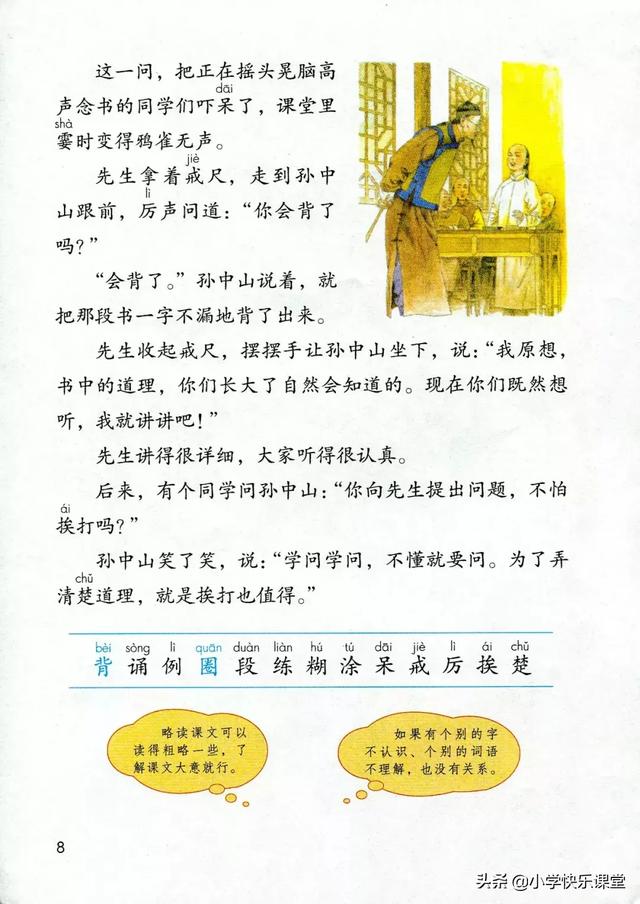 这一问，把正在摇头晃脑高
dāi
声念书的同学们吓呆了，课堂里
shà
霎时变得鸦雀无声。
jiè
先生拿着戒尺，走到孙中
lì
山跟前，厉声问道：“你会背了
吗？”
“会背了。”孙中山说着，就
把那段书一字不漏地背了出来。
先生收起戒尺，摆摆手让孙中山坐下，说：“我原想，
书中的道理，你们长大了自然会知道的。现在你们既然想
听，我就讲讲吧！”
先生讲得很详细，大家听得很认真。
后来，有个同学问孙中山：“你向先生提出问题，不怕
ái
挨打吗？”
孙中山笑了笑，说：“学问学问，不懂就要问。为了弄
chǔ
清楚道理，就是挨打也值得。”
bèi sòng lì quān duàn liàn hú tú dāi jiè lì ái chǔ
背 诵 例 圈 段 练 糊 涂 呆 戒 厉 挨 楚
略读课文可以
读得粗略一些，了
解课文大意就行。
如果有个别的字
不认识、个别的词语
不理解，也没有关系。
8
头条 @小学快乐课堂